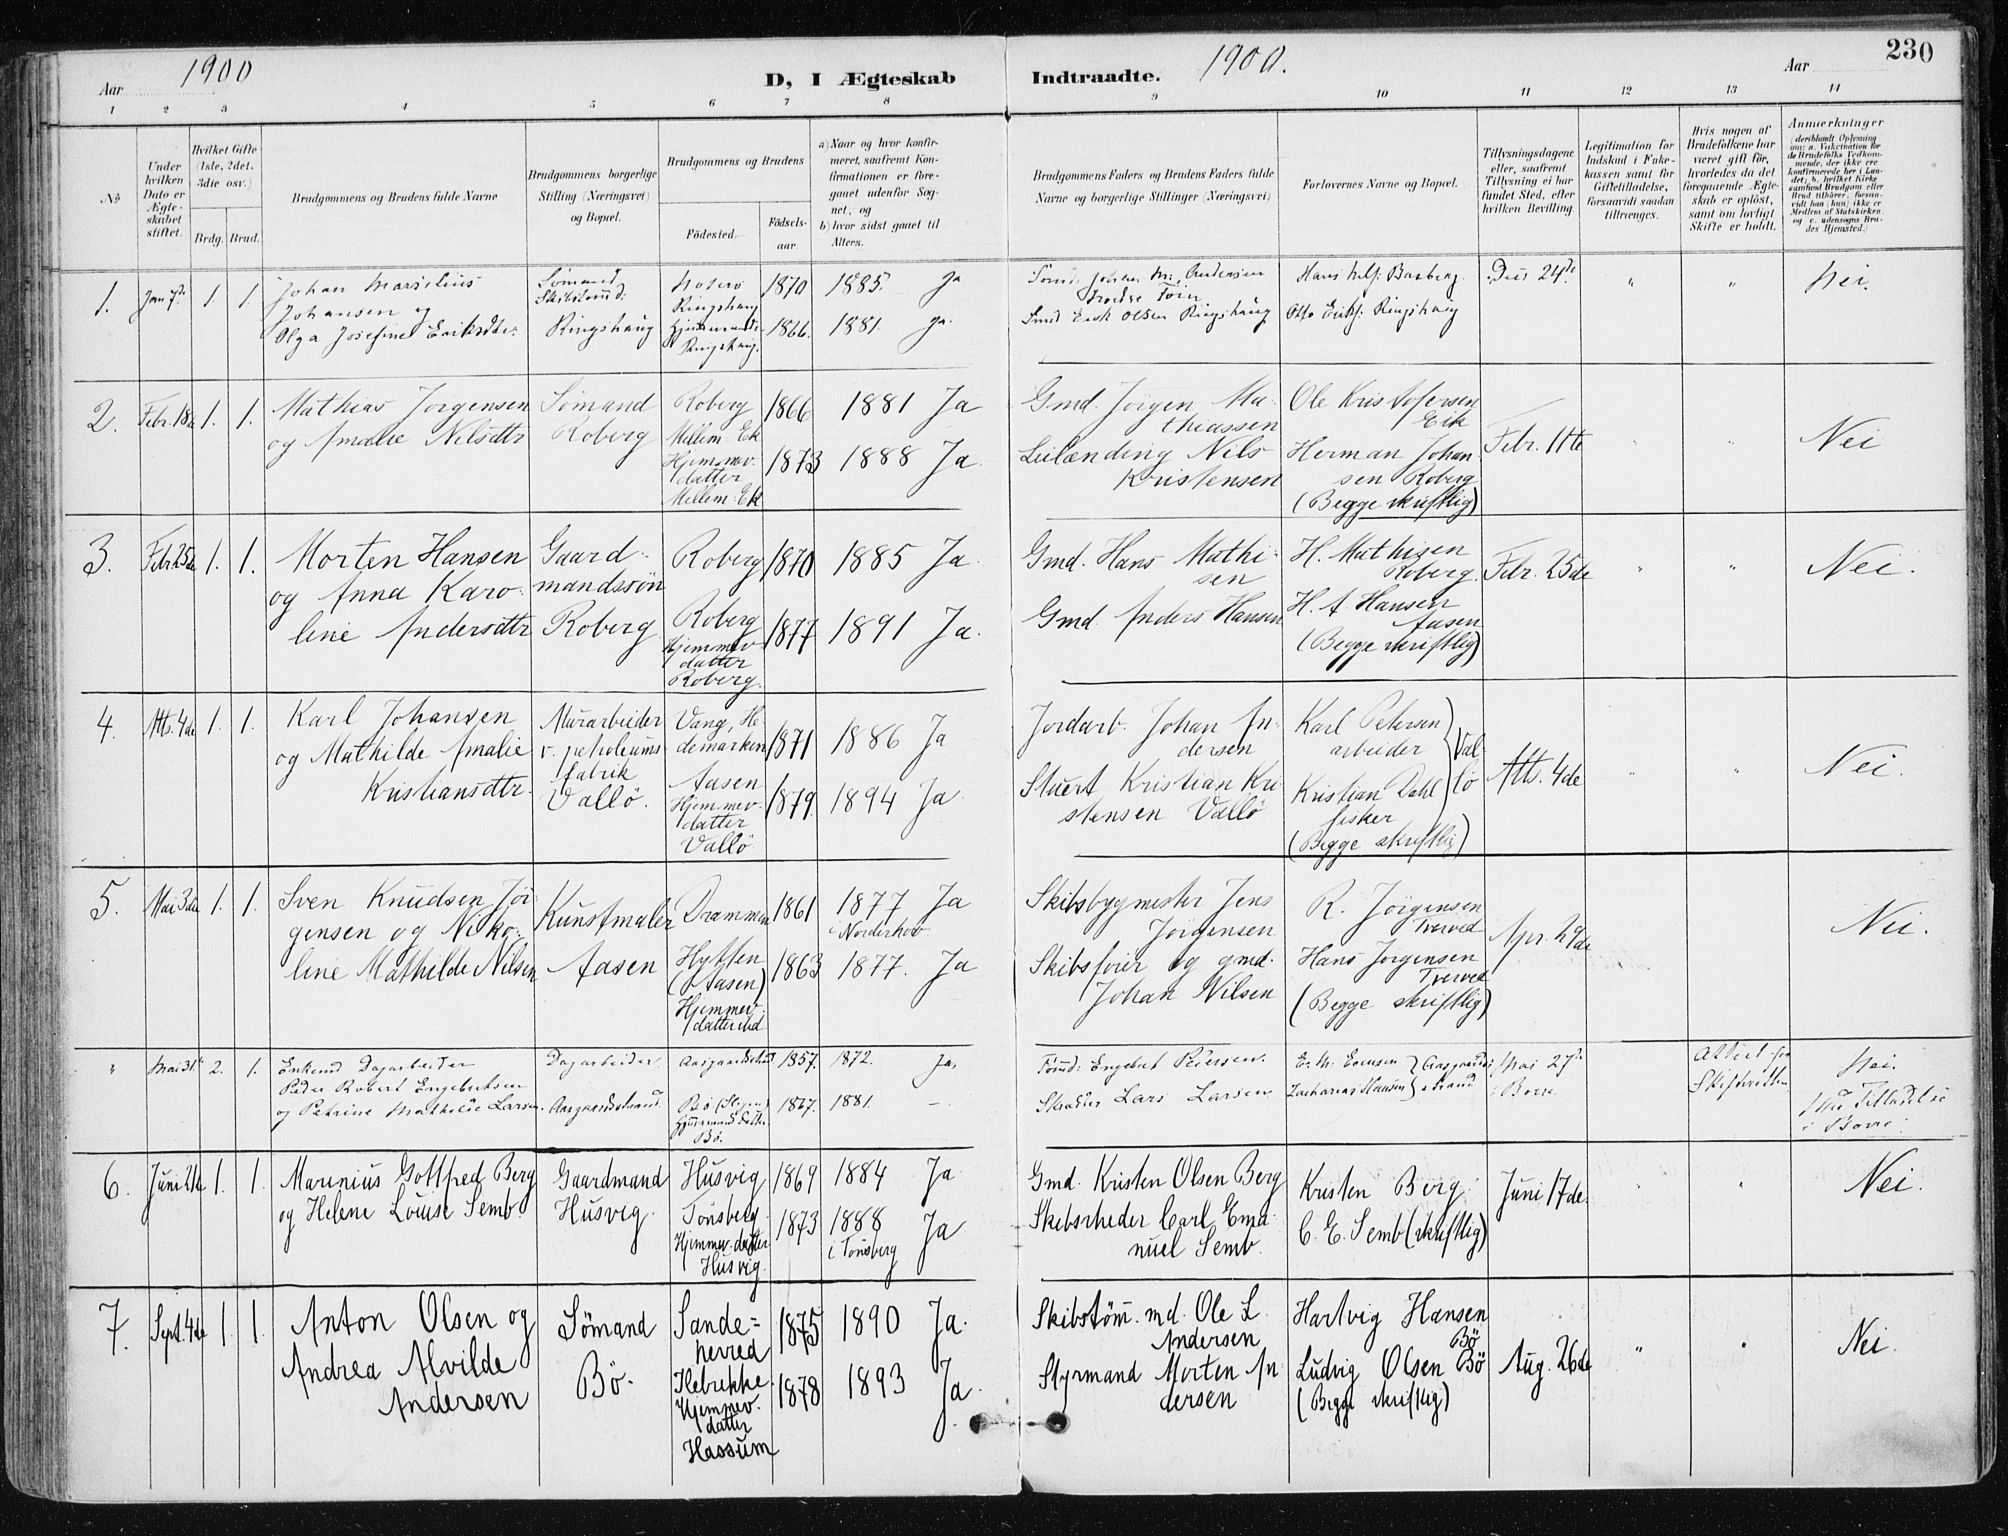 1900
1900.
230
Aar
D, I Ægteskab
Indtraadte.
Aar
1 2 3 4 5 6 7 8 9 10 11 12 13 14
No
Under hvilken Dato er Ægteskabet stiftet.
Hvilket Gifte (1ste, 2det, 3die osv.)
Brdg. Brud.
Brudgommens og Brudens fulde Navne
Brudgommens borgerlige Stilling (Næringsvei) og Bopæl.
Brudgommens og Brudens
Fødested.
Fødsels-aar.
a) Naar og hvor konfirmeret, saafremt Konfirmationen er foregaaet udenfor Sognet, og
b) hvor sidst gaaet til Alters.
Brudgommens Faders og Brudens Faders fulde Navne og borgerlige Stillinger (Næringsvei)
Forlovernes Navne og Bopæl.
Tillysningsdagene eller, saafremt Tillysning ei har fundet Sted, efter hvilken Bevilling.
Legitimation for Indskud i Enkekassen samt for Giftetilladelse, forsaavidt saadan tiltrænges.
Hvis nogen af Brudefolkene har været gift før, hvorledes da det foregaaende Ægteskab er opløst, samt om lovligt Skifte er holdt.
Anmærkninger
1. 1. 1.
Johan Marsilius
Johansen og
Olga Josefine Eriksdtr.
Sømand
Ringshaug
Ringshaug
1870 1885. Ja
1866. 1881. Ja.
Smd Erik Olsen Ringshaug
Otto Eriks. Ringshaug
Des 24de
" "
Nei.
2. Febr. 18de 1. 1.
Mathias Jørgensen
og Amalie Nilsdtr
Sømand
Roberg
Roberg
Mellem-Ek
Hjemmev.
datter
Mellem-Ek
1866 1881 Ja
1873 1888 Ja.
Gmd. Jørgen Ma-
thiassen
Leilænding Nils
Kristensen
Ole Kristofersen
Eik
Herman Johan-
sen Roberg
(Begge skriftlig)
Febr. 11te
" "
Nei
3. Febr. 25de 1. 1.
Morten Hansen
og Anna Karo-
line Andersdtr
Gaard-
mandssøn
Roberg
Roberg
Roberg
Hjemmev
datter
Roberg.
1870 1885 Ja.
1877 1891 Ja.
Gmd. Hans Mathi-
sen
Gmd. Anders Hansen
H. Mathisen
Roberg.
H. A. Hansen
Aasen
(Begge skriftlig)
Febr. 25de
" "
Nei.
4. Mts. 4de 1. 1.
Karl Johansen
og Mathilde Amalie
Kristiansdtr.
Murarbeider
v. petroleums-
fabrik
Vallö.
Vang, He-
demarken
Aasen
Hjemmev-
datter
Vallö
1871 1886 Ja
1879. 1894 Ja.
Jordarb. Johan An-
dersen
Stuert Kristian Kri-
stensen Vallö
Karl Petersen
arbeider
Kristian Dahl
fisker
Val-
lö
(Begge skriftlig)
Mts. 4de
" "
Nei.
5. Mai 3die 1. 1.
Sven Knudsen Jør-
gensen og Niko-
line Mathilde Nilsen
Kunstmaler
Aasen
Drammen
Hytten
(Aasen)
Hjemmev.
datter ibd
1861 1877 Ja
i Norderhov
1863 1877. Ja
Skibsbygmester Jens
Jørgensen
Skibsfører og gmd.
Johan Nilsen
R. Jørgensen
Tverved
Hans Jørgensen
Tverved
(Begge skriftlig)
Apr. 29de
Nei.
" Mai 31te 2. 1.
Enkemd Dagarbeider
Peder Robert Engebretsen
og Petrine Mathilde Larsen.
Dagarbeider.
Aasgaardstrand.
Aasgaardstrand
Bø
1857. 1872. Ja,
1867. 1881. —
Engebret Pedersen.
Skrædder Lars Larsen
Zacharias Hansen
Mai 27de
i Borre
Attest fra
Skifteretten
Nei.
6. Juni 21de 1. 1.
Marenius Gottfred Berg
og Helene Louise Semb.
Gaardmand
Husvig.
Husvig
Tønsberg
Hjemmev. datter
Husvig.
1869 1884 Ja
1873 1888 Ja
i Tønsberg
Gmd. Kristen Olsen Berg
Skibsrheder Carl Ema-
nuel Semb.
Kristen Berg.
C. E. Semb (skriftlig)
Juni 17de.
" "
Nei.
7. Sept. 4de 1. 1.
Anton Olsen og
Andrea Alvilde
Andersen
Sömand
Bö.
Sande-
herred
Ilebrekke
Hjemmev.
datter
Hassum
1875 1890 Ja.
1878 1893 Ja.
Skibstøm.md. Ole L.
Andersen
Styrmand Morten An-
dersen
Hartvig Hansen
Bö
Ludvig Olsen Bö
(Begge skriftlig)
Aug. 26de
" "
Nei.